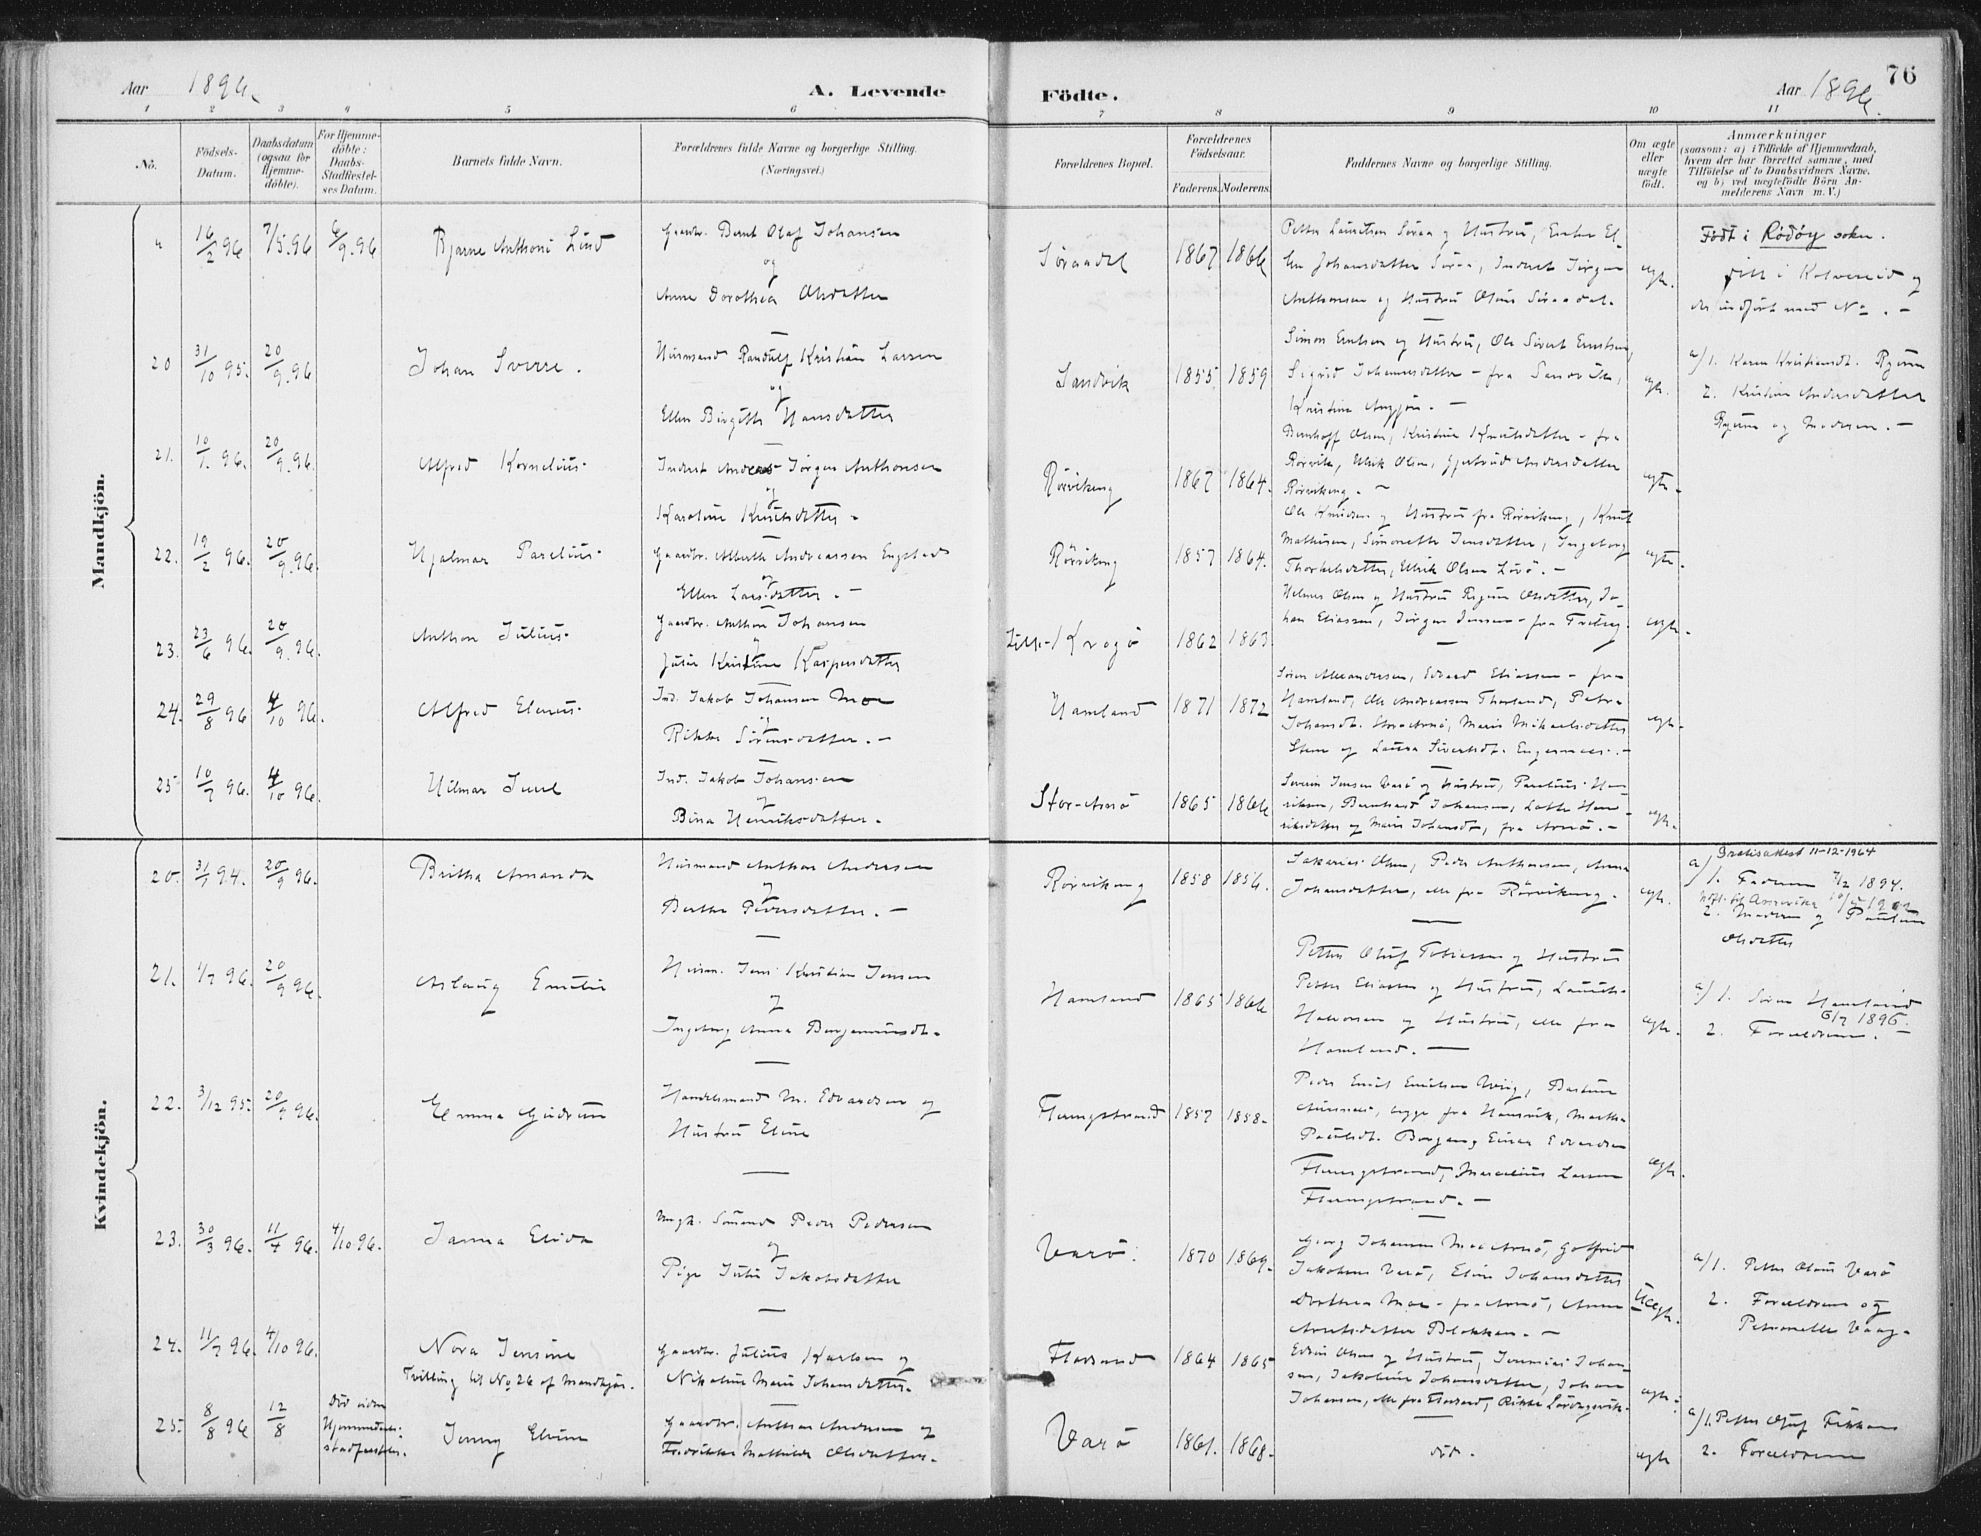 76
Aar 1896.
A. Levende
Födte.
Aar 1896.
1 2 3 4 5 6 7 8 9 10 11
Nö.
Födsels-Datum.
Daabsdatum (ogsaa for Hjemme-döbte).
For Hjemme-döbte: Daabs-Stadfæstel-ses Datum.
Barnets fulde Navn.
Forældrenes fulde Navne og borgerlige Stilling.
(Næringsvei.)
Forældrenes Bopæl.
Forældrenes Födselsaar.
Faderens. Moderens.
Faddernes Navne og borgerlige Stilling.
Om ægte eller uægte födt.
Anmærkninger
(saasom: a) i Tilfælde af Hjemmedaab,
hvem der har forrettet samme, med
Tilföielse af to Daabsvidners Navne,
og b) ved uægtefödte Börn An-
melderens Navn m. V.)
Mandkjön.
16/2 96 7/5.96 6/9.96 Bjarne Anthoni Lind
Gaardbr. Bernt Olaf Johansen
og
Anne Dorothea Olsdatter
Söraadal 1867 1866
Petter Lauritsen Söraa og Hustru,
Johansdatter Söraa, Inderst Jörgen
Anthonsen og Hustru Oline Söraadal.
ægte.
Født i Rödöy sokn.
i Kolvereid og
der indført med No .-
20 31/10 95. 20/9.96 Johan Sverre.
Husmand Randulf Kristian Larsen
og
Ellen Birgitte Hansdatter
Sandvik 1855 1859
Simon Erntsen og Hustru, Ole Sivert Erntsen,
Sigrid Johannesdatter - fra Sandvik,
Kristine -
ægte.
a/1. Karen Kristiansdt. Ryum
2. Kristine Andersdatter
Ryum og Moderen. -
21. 10/1 96. 20/9.96. Alfred Kornelius.
Inderst Andreas Jörgen Anthonsen
og
Karoline Knutsdatter.
Rörvikeng 1867 1864.
Bernhoff Olsen, Kristine Knutsdatter - fra
Rörvik, Ulrik Olsen, Gjertrud Andersdatter
Rörvikeng. -
ægte.
22. 19/2 96. 20/9.96. Hjalmar Parelius.
Gaardbr. Albert Andreassen Engstad
og
Ellen Larsdatter. -
Rörvikeng 1857 1864.
Ole Knudsen og Hustru fra Rörvikeng, Knut
Mathisen, Simonette Jensdatter, Ingeborg
Thorkelsdatter, Ulrik Olsen Lovö. -
ægte.
23. 23/6 96. 20/9.96. Anthon Julius.
Gaardbr. Anthon Johansen
og
Julie Kristine Kaspersdatter
Lille-Krogö 1862 1863
Helmer Olsen og Hustru Regine Olsdatter, Jo-
han Eliassen, Jörgen Jensen - fra
ægte.
24. 29/8 96 4/10 96. Alfred Elenus.
Ind. Jakob Johansen Moe
og
Rikke Sörensdatter. -
Hamland 1871 1872
Sören Alexandersen, Edvard Eliassen - fra
Hamland, Ole Andreassen Thorland, Petra
Johansdt. Stor-Arnö, Marie Mikaelsdatter
Steen og Laura Sivertsdt. Engesnes. -
ægte.
25 10/7 96. 4/10 96. Hilmar Juul
Ind. Jakob Johansen
og
Bina Henriksdatter.
Stor-Arnö 1865 1866
Severin Jensen Varö og Hustru, Parelius Hen-
riksen, Bernhard Johansen, Lotte Hen-
riksdatter og Marie Johansdt., fra Arnö. -
ægte.
Kvindekjön.
20. 31/7 94. 20/9 96. Britha Amanda
Husmand Anthon Andersen
og
Berthe Pedersdatter. -
Rörvikeng 1858 1856.
Sakarias Olsen, Peder Anthonsen, Anna
Johansdatter, alle fra Rörvikeng.
ægte.
Gratisattest 11-12-1964
a/1. Faderen 7/12 1894.
2. Moderen og Pauline
Olsdatter
21. 1/7 96. 20/9 96. Aslaug Emilie
Husm. Jens Kristian Jensen
og
Ingeborg Anna Benjaminsdt.
Hamland 1865 1866
Petter Oluf Tobiassen og Hustru
Petter Eliassen og Hustru, Laurits
Halvorsen og Hustru, alle fra
Hamland. -
ægte.
a/1. Sören Hamland
6/7 1896.
2. Forældrene. -
22. 3/12 95. 20/9 96. Emma Gudrun
Handelsmand M. Edvardsen og
Hustru Eline
Flerengstrand 1857 1858.
Peder Emil Emilsen Wiig,
begge fra Hansvik, Martha
Paulsdt. Borgan, Einar Edvardsen
Marselius Larsen
ægte.
23. 30/3 96. 11/4 96. 4/10 96. Janna Elida
Ungk. Sömand Peder Pedersen
og
Pige Julie Jakobsdatter
Varö. 1870 1869.
Georg Johansen Moe Arnö, Gotfred
Jakobsen Varö, Eline Johansdatter
Dorthea Moe - fra Arnö, Anne
Arntsdatter Blokken. -
Uægte.
a/1. Petter Olaus Varö
2. Forældrene og
Petronelle Vaag.
24. 11/7 96. 4/10 96. Nora Jensine
Tvilling til No 26 af Mandkjön.
Gaardbr. Julius Karlsen og
Nikoline Marie Johansdatter.
Flosand 1864 1865
Edvin Olsen og Hustru, Jeremias Johan-
sen, Jakobine Johansdatter, Johan
Johansen, alle fra Flosand, Rikke
ægte.
25. 8/8 96 12/8 Död uden
Hjemmedaabs-
stadfæstelse.
Jenny Elvine
Gaardbr. Anthon Andersen og
Fredrikke Mathilde Olsdatter.
Varö 1861. 1868.
död.
ægte
a/1. Petter Oluf
2. Forældrene